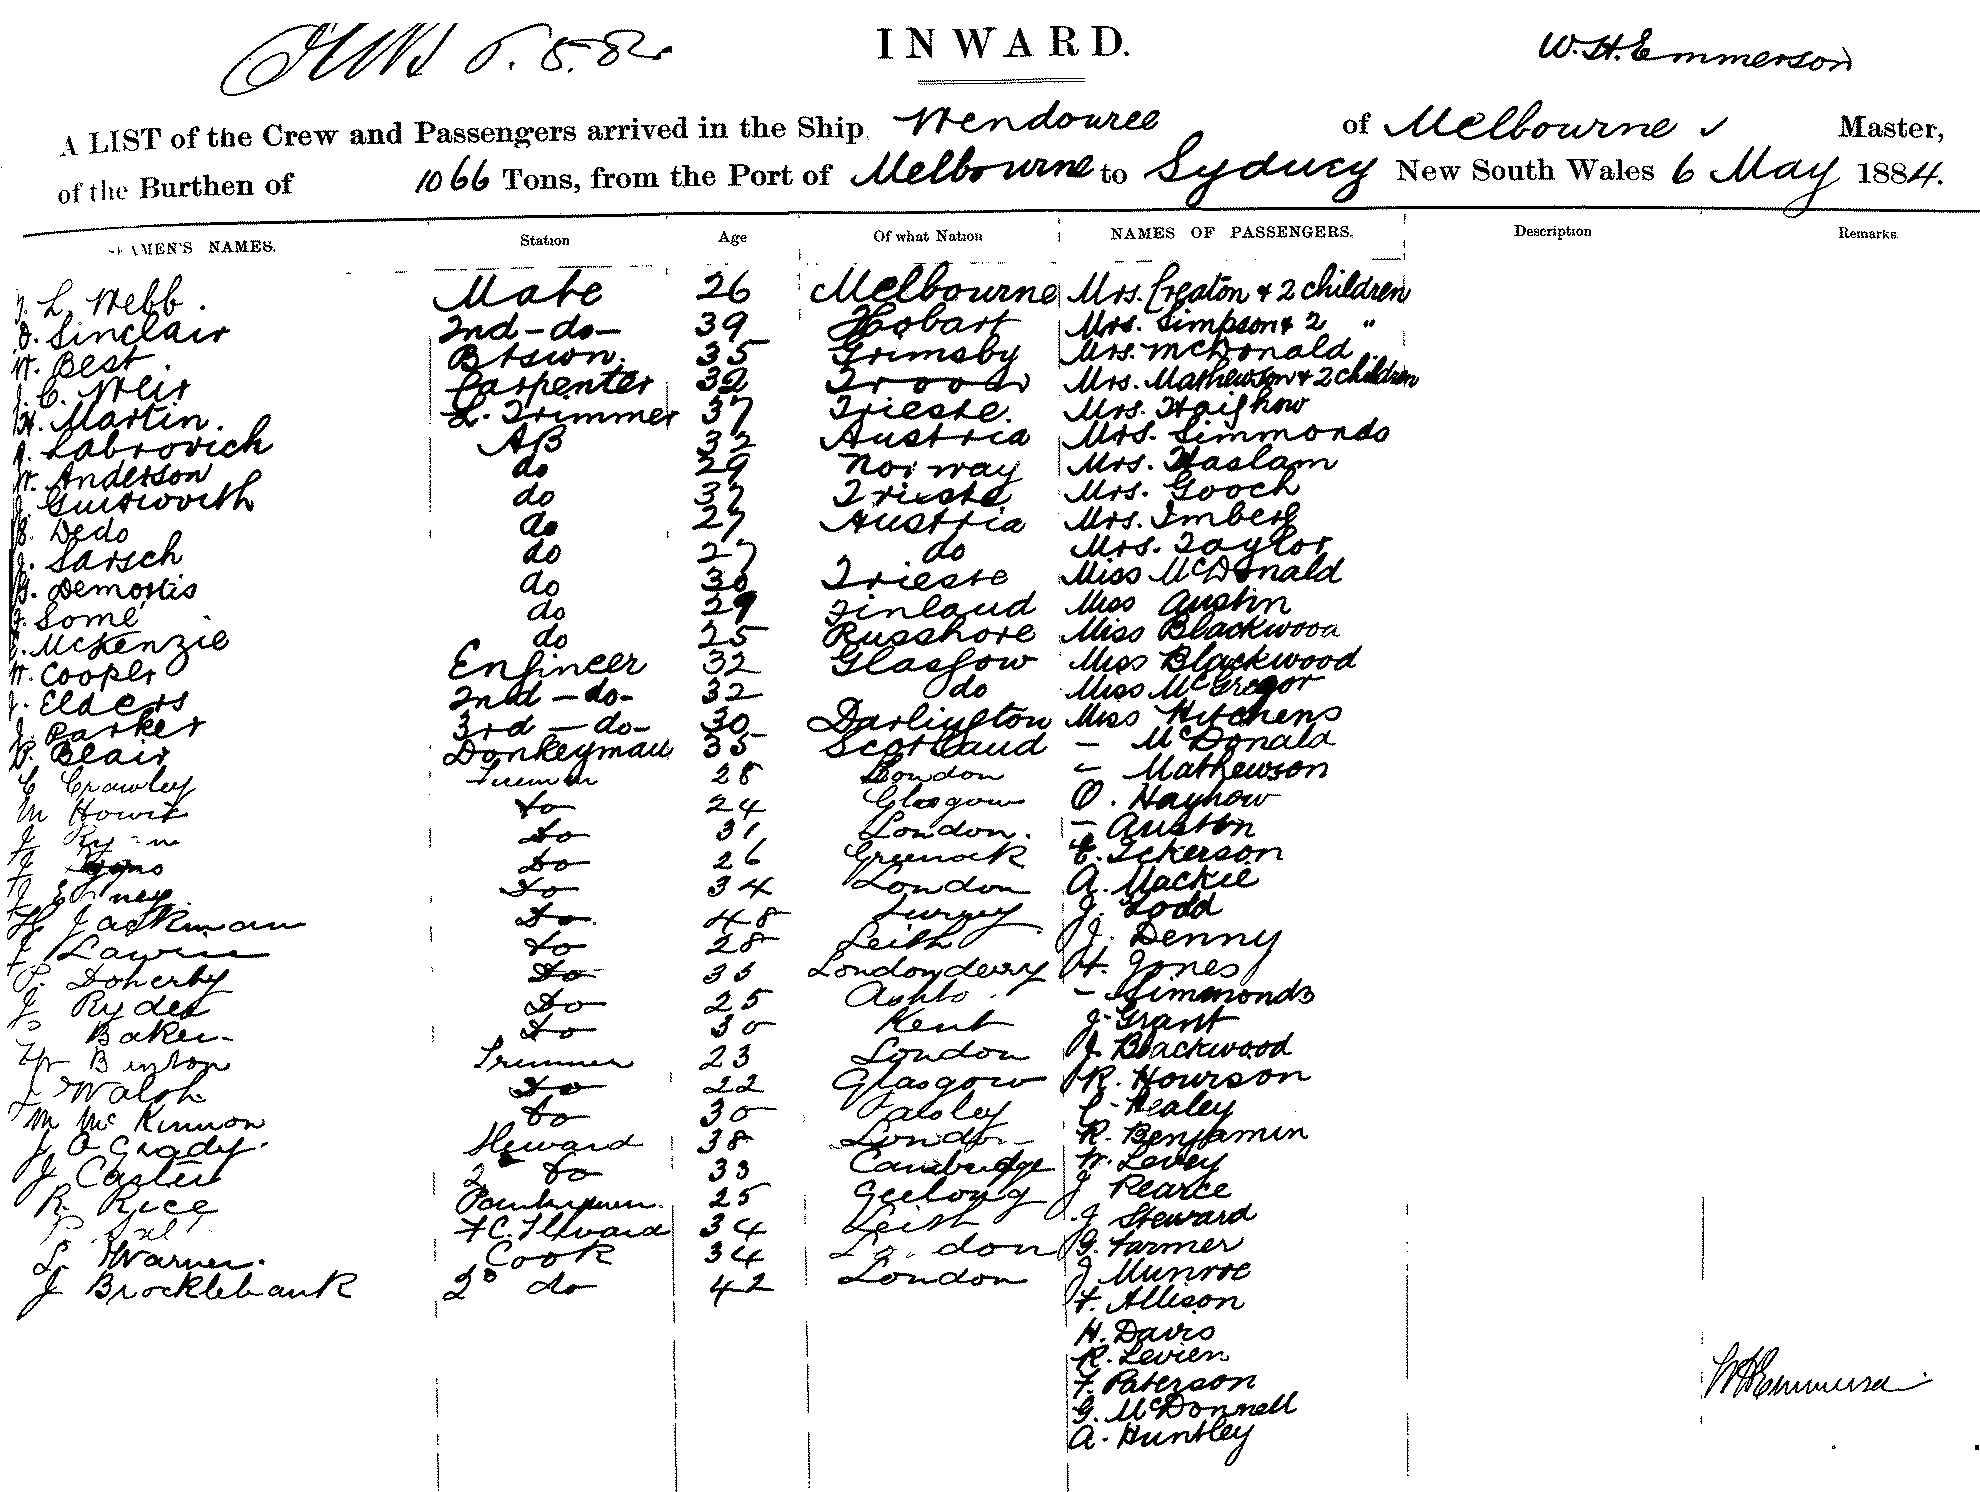 INWARD.
W. H. Emmerson
A LIST of the Crew and Passengers arrived in the Ship Wendouree of Melbourne Master,
of the Burthen of 1066 Tons, from the Port of Melbourne to Sydney New South Wales 6 May 1884.
NAMES. Station Age Of what Nation NAMES OF PASSENGERS. Description Remarks
L. Webb. Mate 26 Melbourne Mrs. Creaton & 2 children
D. Sinclair 2nd - do - 39 Hobart Mrs. Simpson & 2 "
W. Best Btswn. 35 Grimsby Mrs. McDonald
J. C. Weir Carpenter 32 Troon Mrs. Mathewson & 2 children
H. Martin. L. Trimmer 37 Trieste. Mrs. Haighow
A. Labrovich AB 32 Austria Mrs. Simmonds
W. Anderson do 29 Norway Mrs. Haslam
J. do 37 Trieste Mrs. Gooch
B. Dedo do 27 Austria Mrs. Imberg
J. Sarsch do 27 do Mrs. Taylor
G. Demostis do 30 Trieste Miss McDonald
J. Some do 29 Finland Miss Austin
McKenzie do 25 Russhore Miss Blackwood
W. Cooper Engineer 32 Glasgow Miss Blackwood
J. Elders 2nd - do - 32 do Miss McGregor
J. Parker 3rd - do - 30 Darlington Miss Hitchens
P. Blair Donkeyman 35 Scotland - McDonald
C Crawley Fireman 28 London - Mathewson
M Howit do 24 Glasgow O. Hayhow
J do 31 London. - Austin
J do 26 Greenock E. Ickerson
J do 34 London A. Mackie
H Jackman do 48 Surrey J. Todd
J Lawrie do 28 Leith J. Denny
P. Doherty do 35 Londonderry H. Jones
J Ryder do 25 - Simmonds
Baker do 30 Kent J. Grant
W Buxton Trimmer 23 London J. Blackwood
J Walsh do 22 Glasgow R. Hourson
M McKinnon do 30 Paisley C. Healey
J O Grady. Steward 38 London R. Benjamin
J Carter 2 do 33 Cambridge W. Levey
R. Rice Pantryman. 25 Geelong J Pearce
F.C. Steward 34 Leith J Steward
L. Warner. Cook 34 London G. Farmer
J Brocklebank 2d do 42 London J Munroe
F. Allison
H. Davis
R. Levien
F. Paterson
G. McDonnell
A. Huntley
W H Emmerson